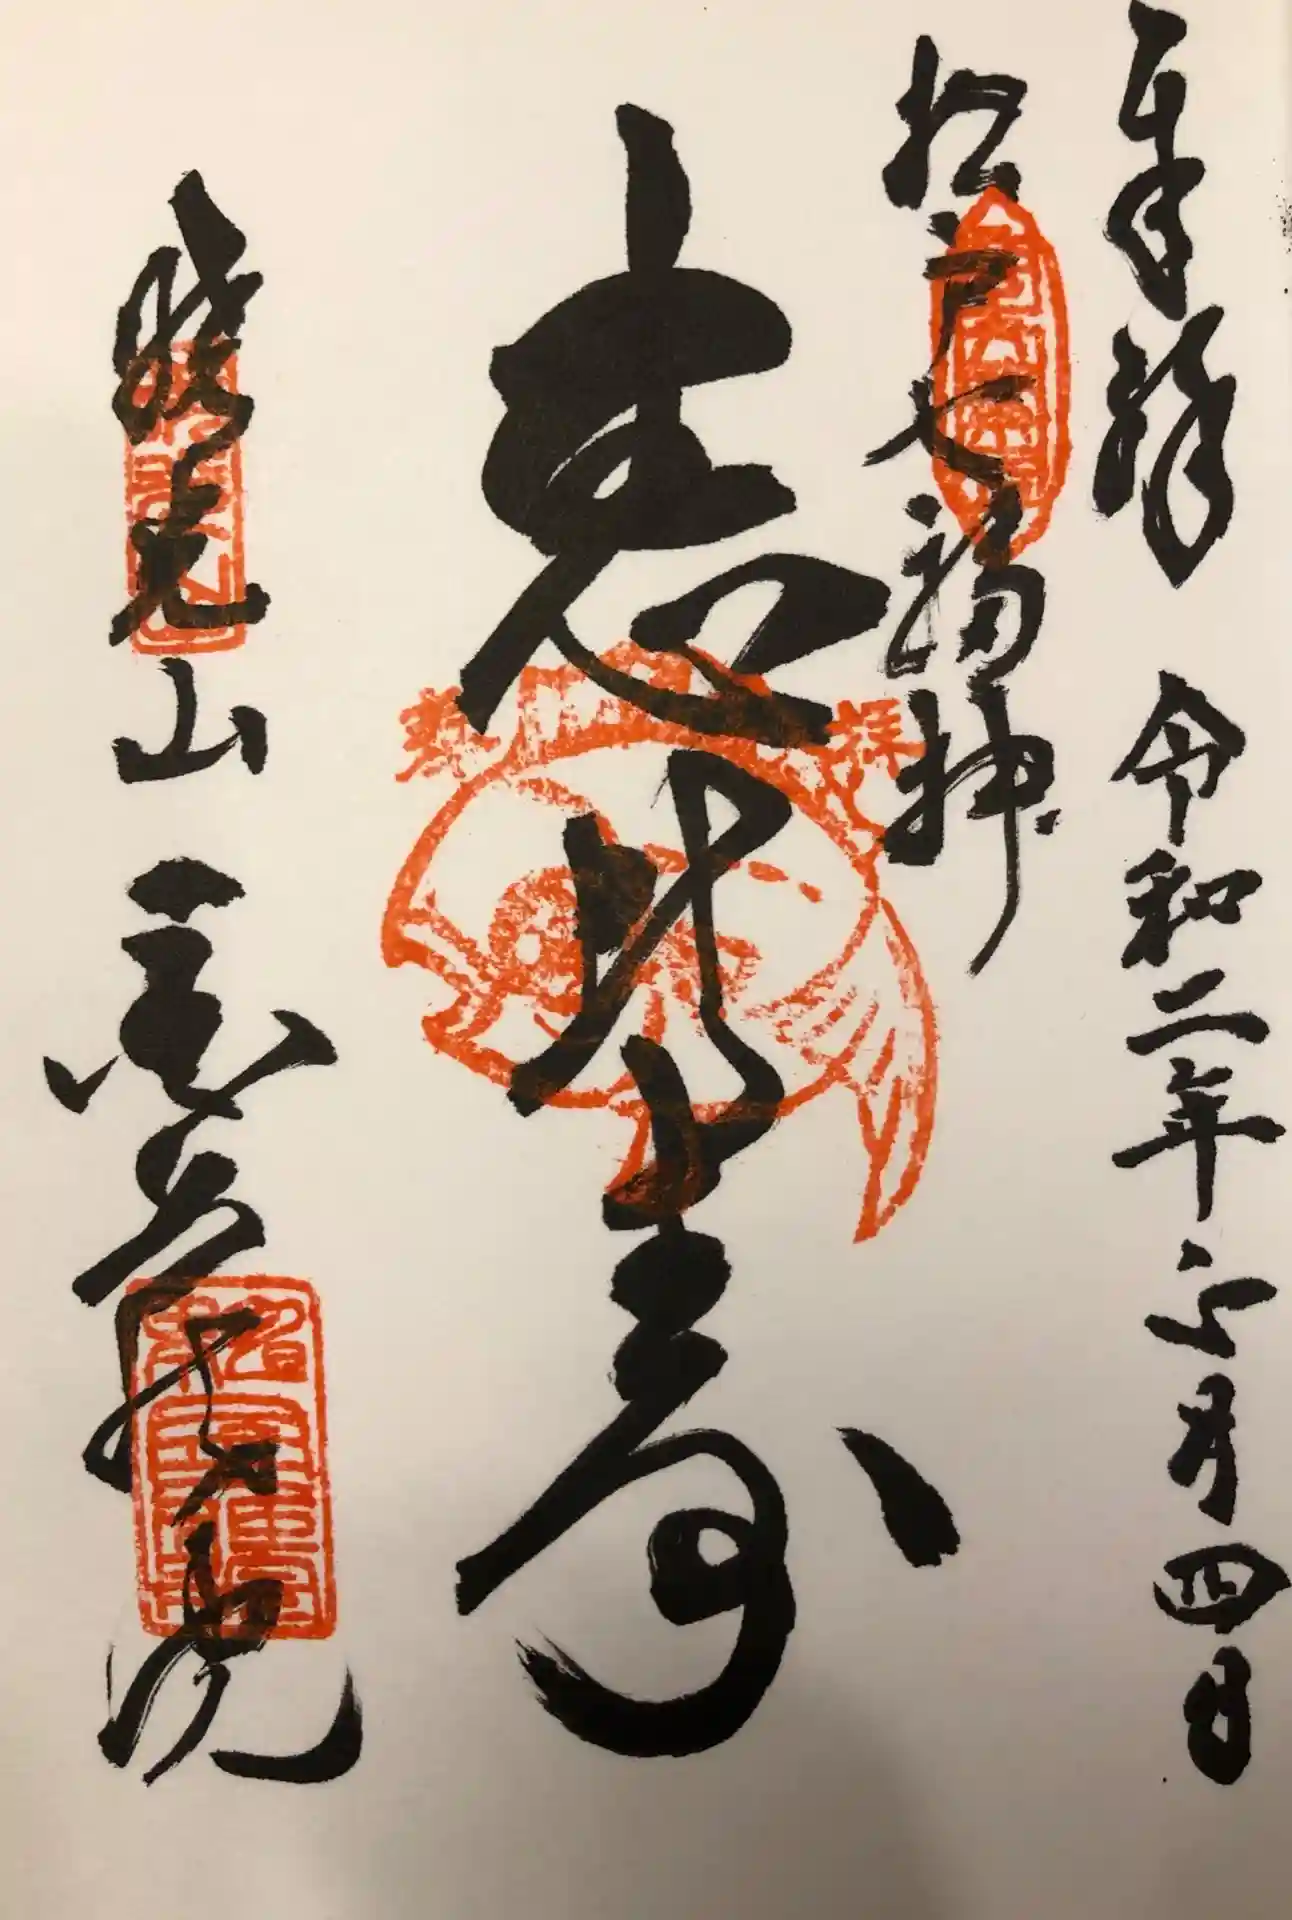 奉拝 令和二年正月四日
松戸七福神
恵比寿
暁光山 院